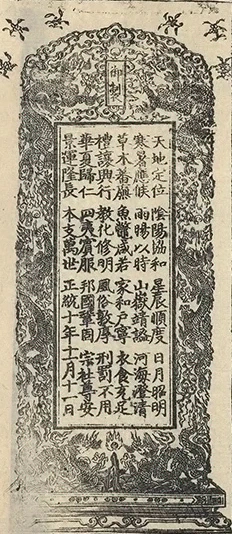 御制
天地定位 陰陽協和 星辰順度 日月昭明
寒暑應候 雨暘以時 山嶽靖謐 河海澄清
草木蕃廡 魚鱉咸若 家和戶寧 衣食充足
禮讓興行 教化修明 風俗敦厚 刑罰不用
華夏歸仁 四夷賓服 邦國鞏固 宗社尊安
景運隆長 本支萬世 正統十年十一月十一日